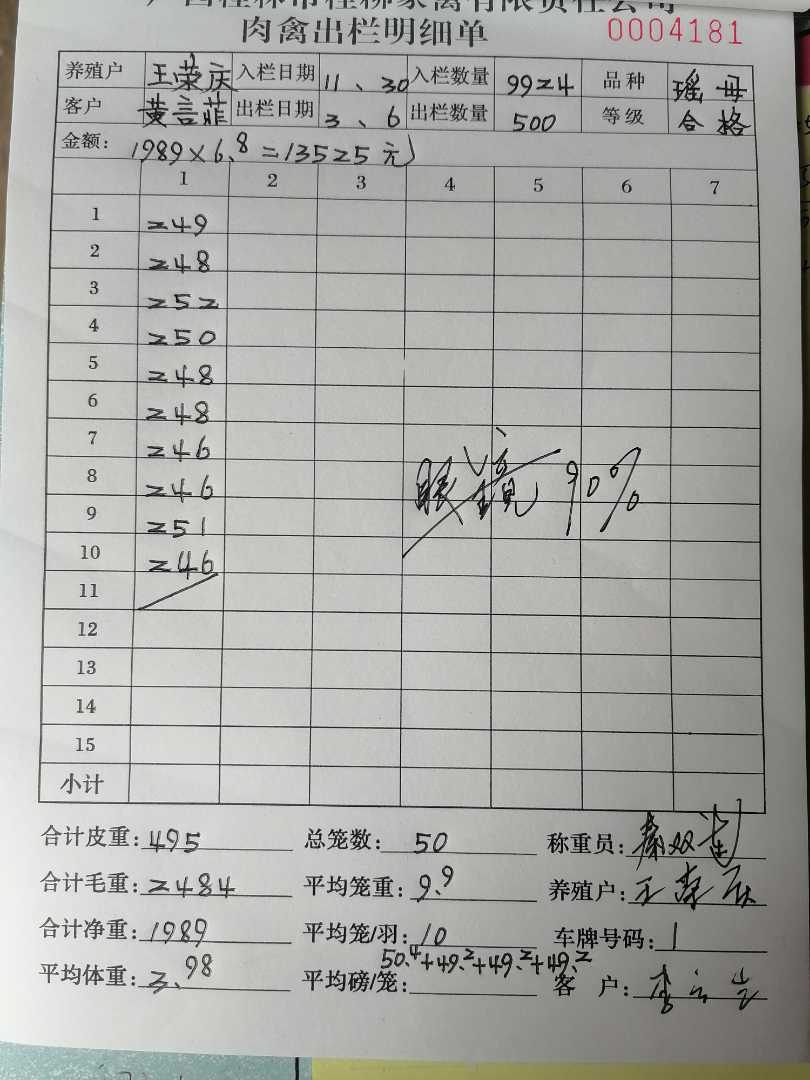 广西桂林市桂柳家禽有限责任公司
肉禽出栏明细单 0004181
养殖户 王荣庆 入栏日期 11、30 入栏数量 9924 品种 瑶鸡
客户 黄言菲 出栏日期 3、6 出栏数量 500 等级 合格
金额: 1989×6.8=13525元
1 2 3 4 5 6 7
1 249
2 248
3 252
4 250
5 248
6 248
7 246
8 246 眼镜 90%
9 251
10 246
11
12
13
14
15
小计
合计皮重: 495 总笼数: 50 称重员: 秦双
合计毛重: 2484 平均笼重: 9.9 养殖户: 王荣庆
合计净重: 1989 平均笼/羽: 10 车牌号码: 1
50.4+49.2+49.2+49.2
平均体重: 3.98 平均磅/笼: 客 户: